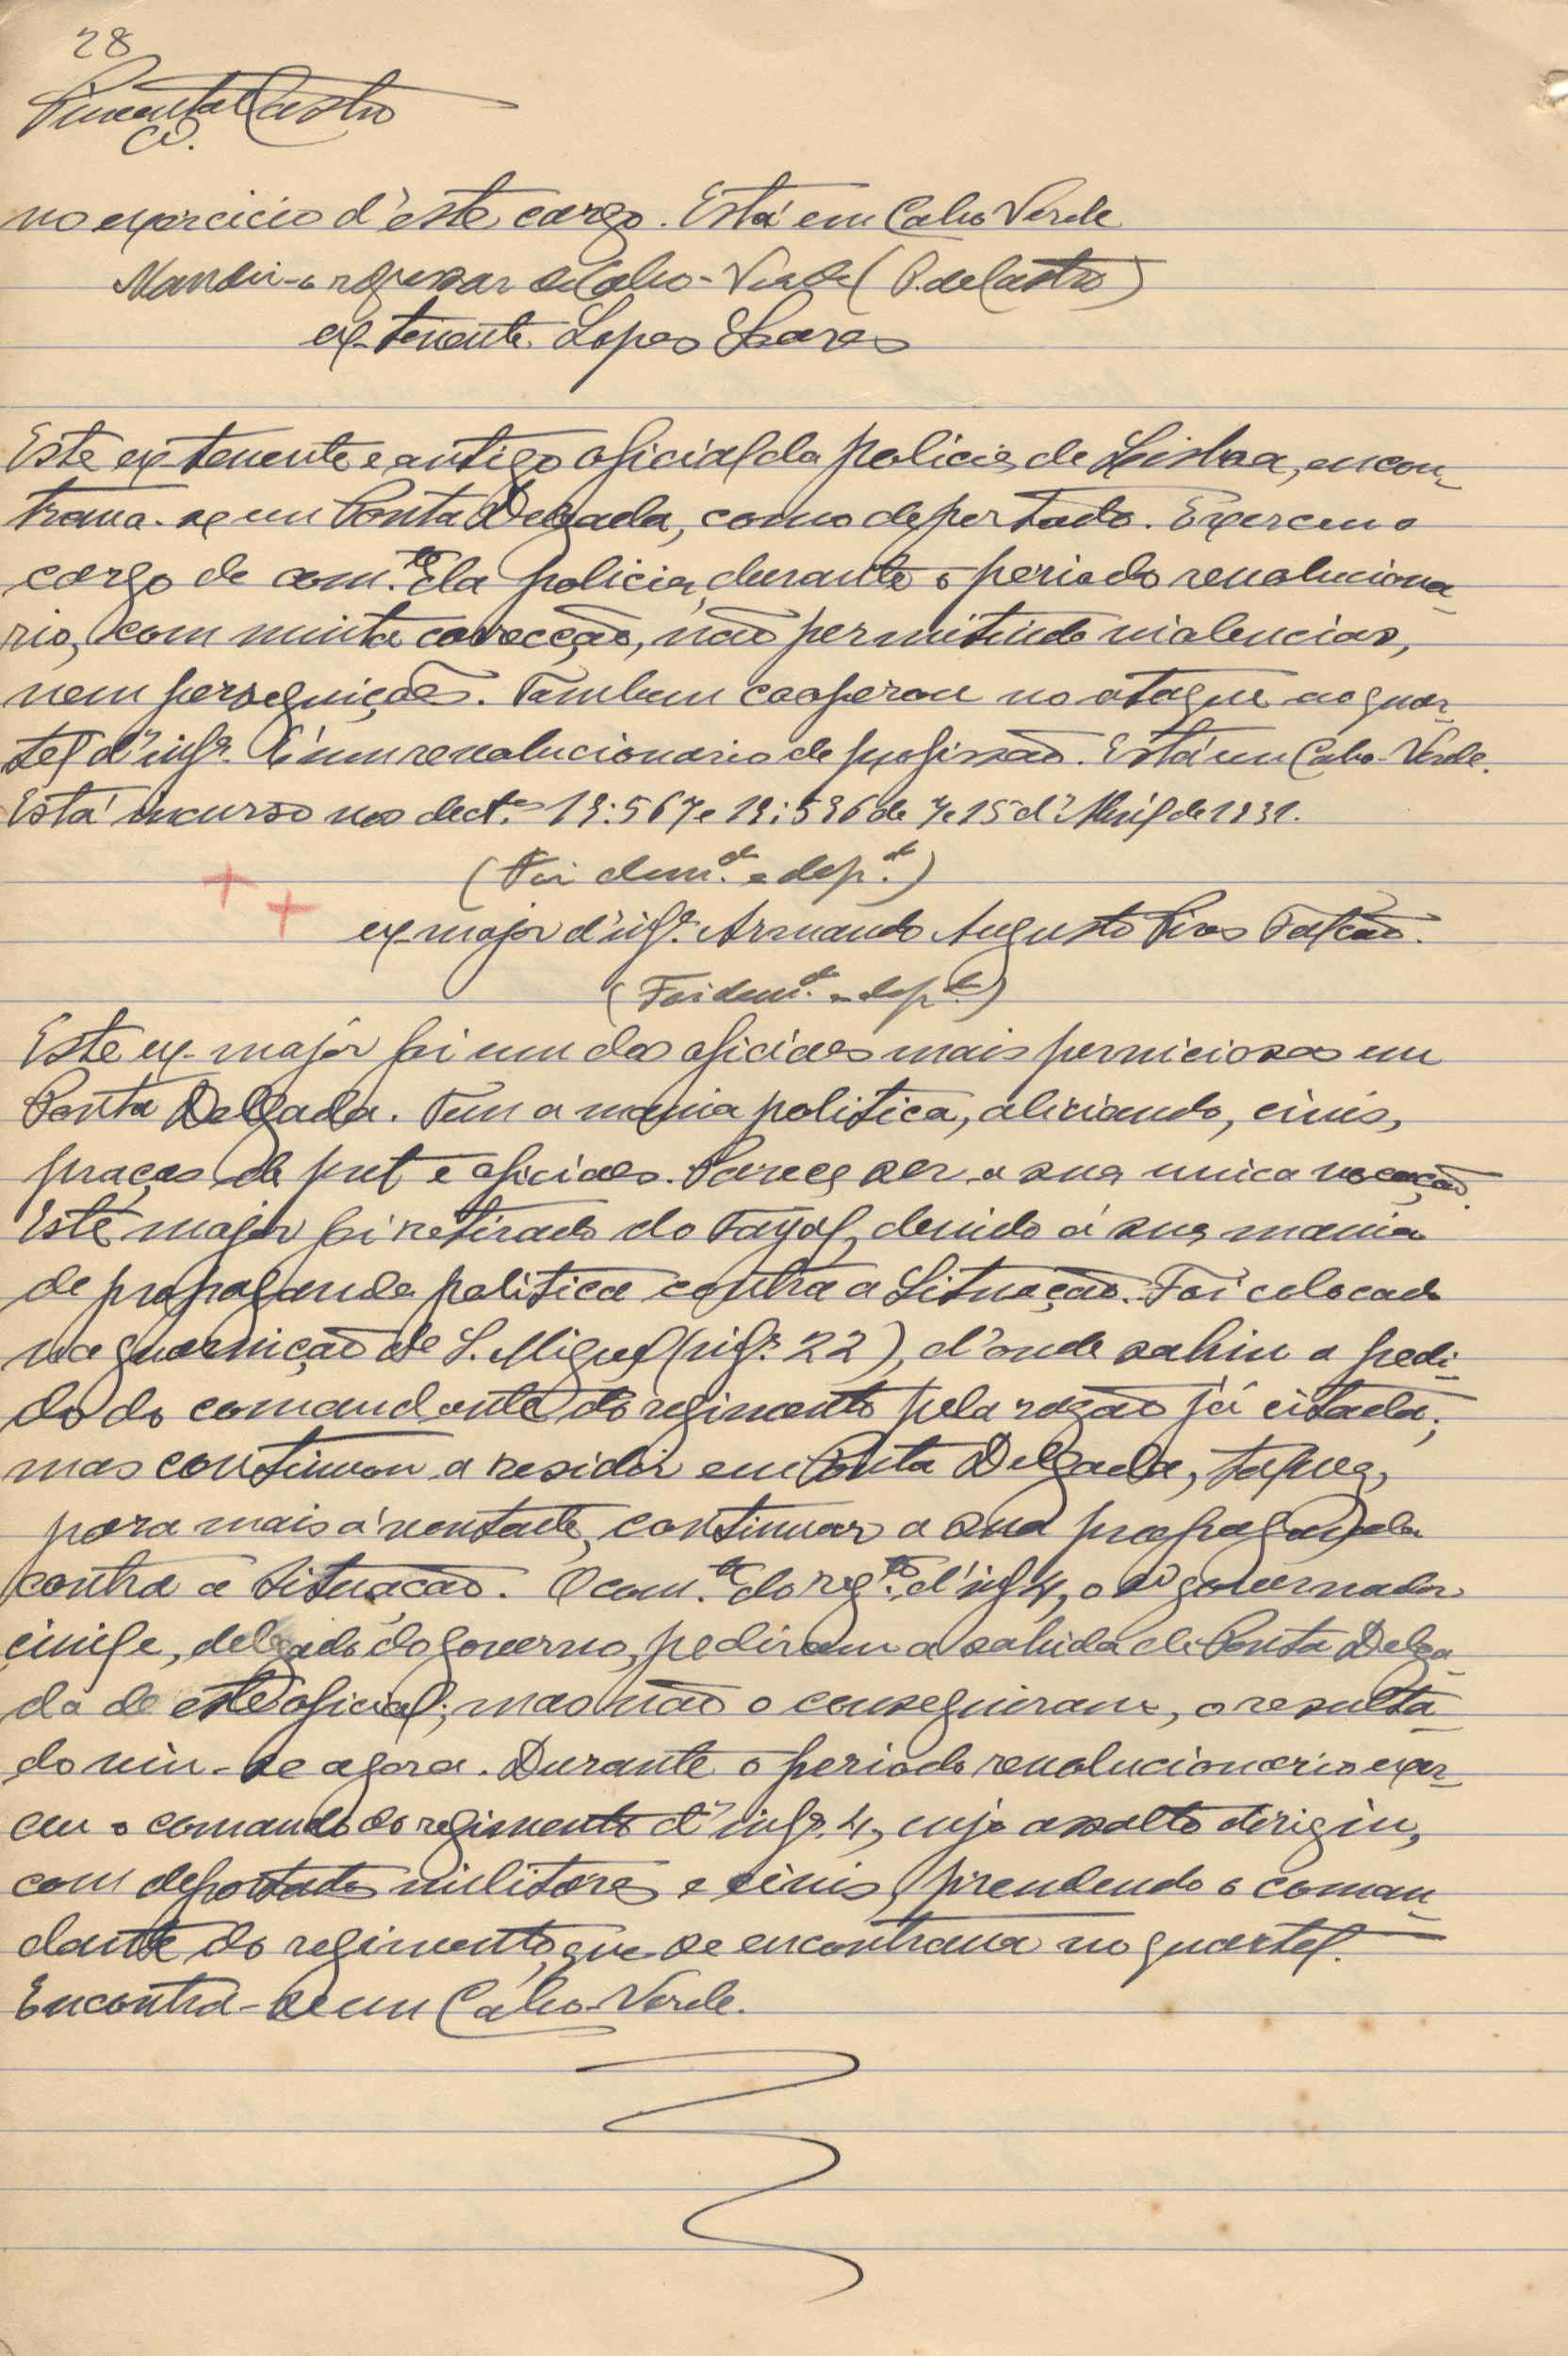 28
Pimenta Castro
no exercicio d'este cargo. Está em Cabo Verde
Mandei-o regressar de Cabo-Verde (P. de Castro)
ex-tenente Lopes Soares
Este ex-tenente e antigo oficial da policia de Lisboa, encon-
trava-se em Ponta Delgada, como deportado. Exerceu o
cargo de com.te da policia, durante o periodo revoluciona-
rio, com muita correcção, não permitindo violencias,
nem perseguições. Tambem cooperou no ataque ao quar-
tel d'inf.ª É um revolucionario de profissão. Está em Cabo-Verde.
Está incurso nos dect.os 19:567 e 19:596 de 7 e 15 d'Abril de 1931.
(Foi dem.do e dep.do)
ex-major d'inf.ª Armando Augusto Pires Falcão.
(Foi dem.do e dep.do)
Este ex-major foi um dos oficiaes mais perniciosos em
Ponta Delgada. Tem a mania politica, aliciando, civis,
praças de pret e oficiaes. Parece ser a sua unica vocação.
Este major foi retirado do Fayal, devido á sua mania
de propaganda politica contra a Situação. Foi colocado
na guarnição de S. Miguel (inf.ª 22), d'onde sahiu a pedi-
do do comandante do regimento pela razão já citada;
mas continuou a residir em Ponta Delgada, talvez,
para mais á vontade, continuar a sua propaganda
contra a Situação. O com.te do reg.to d'inf.ª 4, o governador
civil e, delegado do governo, pediram a sahida de Ponta Delga-
da de este oficial; mas não o conseguiram, o resulta-
do viu-se agora. Durante o periodo revolucionario exer-
ceu o comando do regimento d'inf.ª 4, cujo assalto dirigiu,
com deportados militares e civis, prendendo o coman-
dante do regimento, que se encontrava no quartel.
Encontra-se em Cabo-Verde.